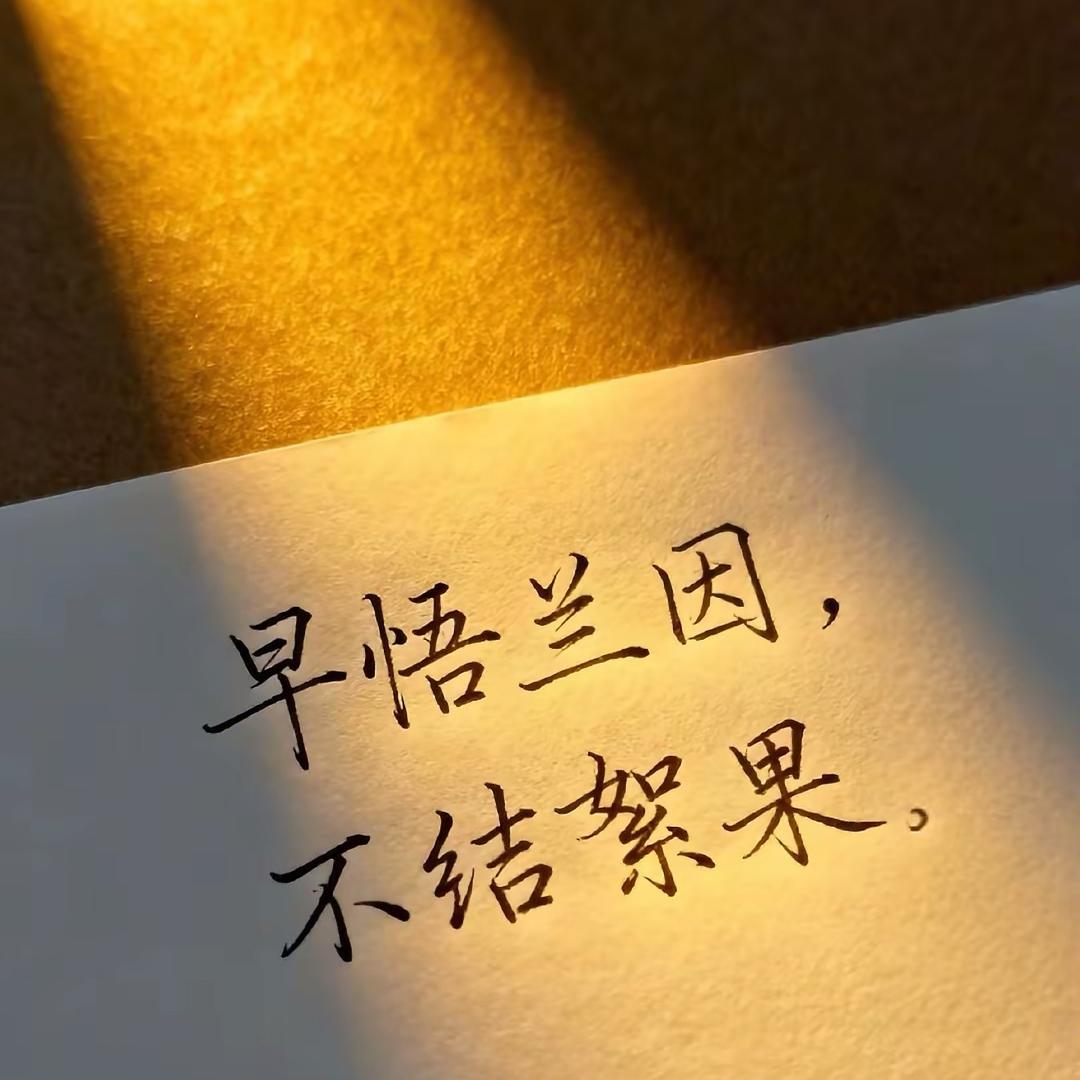 早悟兰因，
不结絮果。